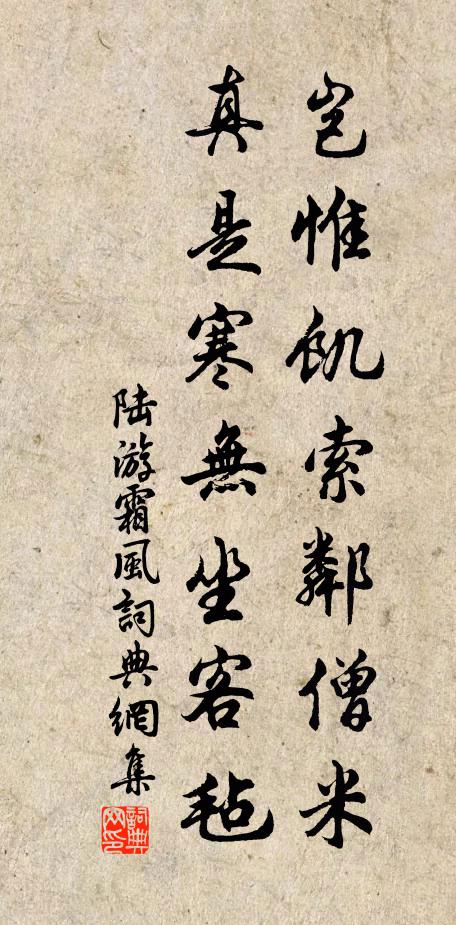 豈惟飢索鄰僧米
真是寒無坐客毡
陸游霜風詞典網集
詞典网印